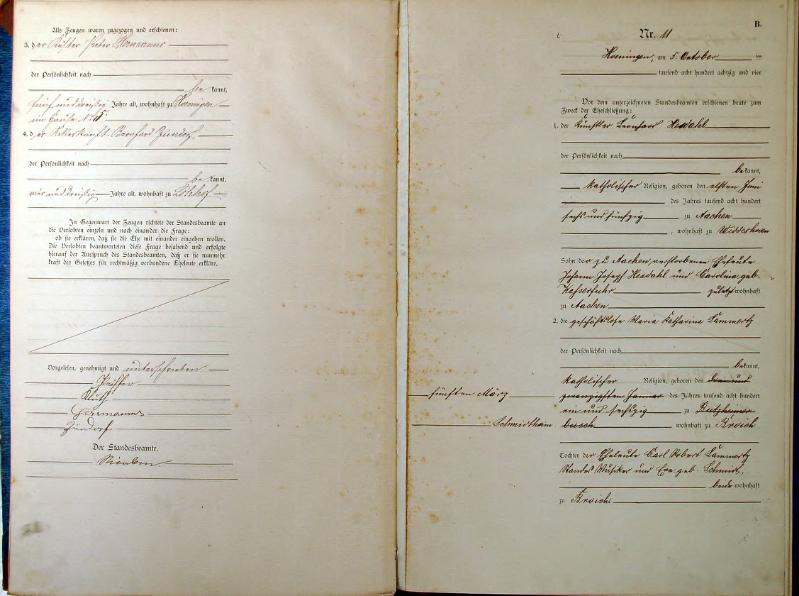 Als Zeugen waren zugezogen und erschienen:
3. der Küster Peter Hermanns
der Persönlichkeit nach
be kannt,
fünf und dreißig Jahre alt, wohnhaft zu Hoeningen
im Hause N. 11
4. der
der Persönlichkeit nach
be kannt,
vier und dreißig Jahre alt, wohnhaft zu
In Gegenwart der Zeugen richtete der Standesbeamte an
die Verlobten einzeln und nach einander die Frage:
ob sie erklären, daß sie die Ehe mit einander eingehen wollen.
Die Verlobten beantworteten diese Frage bejahend und erfolgte
hierauf der Ausspruch des Standesbeamten, daß er sie nunmehr
kraft des Gesetzes für rechtmäßig verbundene Eheleute erkläre.
Vorgelesen, genehmigt und unterschrieben
Hermanns
Zündorf
Der Standesbeamte.
B.
Nr. 11
Hoeningen, am 5. October
tausend acht hundert achtzig und vier
Vor dem unterzeichneten Standesbeamten erschienen heute zum
Zweck der Eheschließung:
1. der Künstler Leonhard
der Persönlichkeit nach
bekannt,
katholischer Religion, geboren den elften Juni
des Jahres tausend acht hundert
sechs und fünfzig zu Aachen
, wohnhaft zu
Sohn der zu Aachen verstorbenen Eheleute
Johann Joseph und Carolina geb.
zuletzt wohnhaft
zu Aachen
2. die geschäftslose Maria Katharina Lammertz
der Persönlichkeit nach
bekannt,
katholischer Religion, geboren den drei und
fünften März zwanzigsten Januar des Jahres tausend acht hundert
ein und sechszig zu
busch, wohnhaft zu Broich
Tochter der Eheleute Carl Robert Lammertz
Standes Musiker und Eva geb. Schmitz,
beide wohnhaft
zu Broich